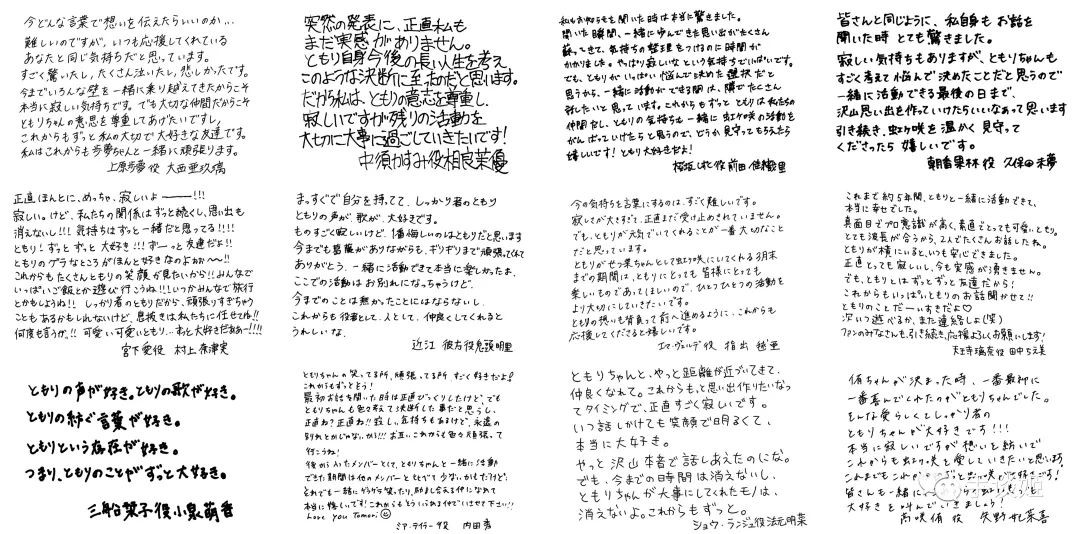 今どんな言葉で想いを伝えたらいいのか...
難しいのですが、いつも応援してくれている
あなたと同じ気持ちだと思っています。
すごく驚いたし、たくさん泣いたし、悲しかったです。
今までいろんな壁を一緒に乗り越えてきたからこそ
本当に寂しい気持ちです。でも大切な仲間だからこそ
ともりちゃんの意思を尊重してあげたいですし、
これからもずっと私の大切で大好きな友達です。
私はこれからも歩夢ちゃんと一緒に頑張ります。
上原歩夢役 大西亜玖璃
突然の発表に、正直私も
まだ実感がありません。
ともり自身今後の長い人生を考え
このような決断に至ったのだと思います。
だから私は、ともりの意志を尊重し、
寂しいですが残りの活動を
大切に大事に過ごしていきたいです!
中須かすみ役相良茉優
私もお知らせを聞いた時は本当に驚きました。
聞いた瞬間、一緒に歩んできた思い出がたくさん
蘇ってきて、気持ちの整理をつけるのに時間が
かかりました。やっぱり寂しいなという気持ちでいっぱいです。
でも、ともりがいっぱい悩んで決めた選択だと
思うから、一緒に活動ができる間は、隣でたくさん
話したいと思っています。これからもずっとともりは私たちの
仲間だし、ともりの気持ちも一緒に虹ヶ咲の活動を
がんばっていけたらと思うので、どうか見守ってもらえたら
嬉しいです!ともり大好きだよ!
桜坂しずく役 前田佳織里
皆さんと同じように、私自身もお話を
聞いた時とても驚きました。
寂しい気持ちもありますが、ともりちゃんも
すごく考えて悩んで決めたことだと思うので
一緒に活動できる最後の日まで、
沢山思い出を作っていけたらいいなぁって思います
引き続き、虹ヶ咲を温かく見守って
くださったら嬉しいです。
朝香果林役 久保田未夢
正直ほんとに、めっちゃ、寂しいよー!!!
寂しい。けど、私たちの関係はずっと続くし、思い出も
消えないし!!!気持ちはずっと一緒だと思ってる!!!!
ともり!ずっとずっと大好き!!!ずーっと友達だよ!!
ともりのゲラなところがほんと好きなのよぉぉ〜!!
これからもたくさんともりの笑顔が見たいから!!みんなで
いっぱいご飯とか遊び行こうね!!!いつかみんなで旅行
とかもしようね!! しっかり者のともりだから、頑張りすぎちゃう
こともあるかもしれないけど、息抜きは私たちに任せてね!!
何度も言うが!!可愛い可愛いともり...ずっと大好きだぁぁー!!!!
宮下愛役 村上奈津実
まっすぐで自分を持ってて、しっかり者のともり
ともりの声が、歌が、大好きです。
ものすごく寂しいけど、1番悔しいのはともりだと思います
今までも葛藤がありながらも、ギリギリまで頑張ってくれて
ありがとう。一緒に活動できて本当に楽しかったよ。
ここでの活動はお別れになっちゃうけど、
今までのことは無かったことにはならないし、
これからも役者として、人として、仲良くしてくれると
うれしいな。
近江彼方役鬼頭明里
今の気持ちを言葉にするのは、すごく難しいです。
寂しさが大きすぎて、正直まだ受け止めきれていません。
でも、ともりが元気でいてくれることが一番大切なこと
だと思っています。
ともりがせつ菜ちゃんとして虹ヶ咲にいてくれる3月末
までの期間は、ともりにとっても皆様にとっても
楽しいものであってほしいので、ひとつひとつの活動を
より大切にしていきたいです。
ともりの想いも背負って前へ進めるように、これからも
応援してくださると嬉しいです。
エマ・ヴェルデ役 指出毬亜
これまで約5年間、ともりと一緒に活動できて、
本当に幸せでした。
真面目でプロ意識が高く、素直でとっても可愛いともり。
とても波長が合うから、2人でたくさんお話したね。
ともりが横にいると、いつも安心できました。
正直とっても寂しいし、今も実感が湧きません。
でも、ともりとはずっとずっと友達だから!
これからもいっぱい、ともりのお話聞かせて!!
ともりのことだーいすきだよ♡
次いつ遊べるか、また連絡しよ(笑)
ファンのみなさんも、引き続き、応援よろしくお願いします!
天王寺璃奈役 田中ちえ美
ともりの声が好き。ともりの歌が好き。
ともりの紡ぐ言葉が好き。
ともりという存在が好き。
つまり、ともりのことがずっと大好き。
三船栞子役小泉萌香
ともりちゃんの笑ってる所、頑張ってる所 すごく好きだよ!
これからもずっとそう!
最初お話を聞いた時は正直びっくりしたけど、でも
ともりちゃんも色々考えて決断した事だと思うし、
正直ね?正直ね!!寂しい気持ちもあるけど、永遠の
別れとかじゃないから!!!お互いこれからも色々頑張って
行こうね!
後から入ったメンバーとして、ともりちゃんと一緒に活動
できた期間は他のメンバーとくらべて少ないかもだけど、
それでも一緒にゲラゲラ笑ったり、励まし合える仲になれて
本当に嬉しいです!これからもどうぞいちあなたでいさせて下さい!!
Love you Tomori ☺
ミア・テイラー役 内田秀
ともりちゃんと、やっと距離が近づいてきて、
仲良くなれて。これからもっと思い出作りたいなっ
てタイミングで、正直すごく寂しいです。
いつ話しかけても笑顔で明るくて、
本当に大好き。
やっと沢山本音で話しあえたのにな。
でも、今までの時間は消えないし、
ともりちゃんが大事にしてくれたモノは、
消えないよ。これからもずっと。
ショウ・ランジュ役法元明菜
侑ちゃんが決まった時、一番最初に
一番喜んでくれたのがともりちゃんでした。
そんな愛らしくてしっかり者の
ともりちゃんが大好きです!!!
本当に寂しいですが想いを紡いで
これからも虹ヶ咲を愛していきたいと思います!
大好きを叫んでいきましょう!
高咲侑役 矢野妃菜喜